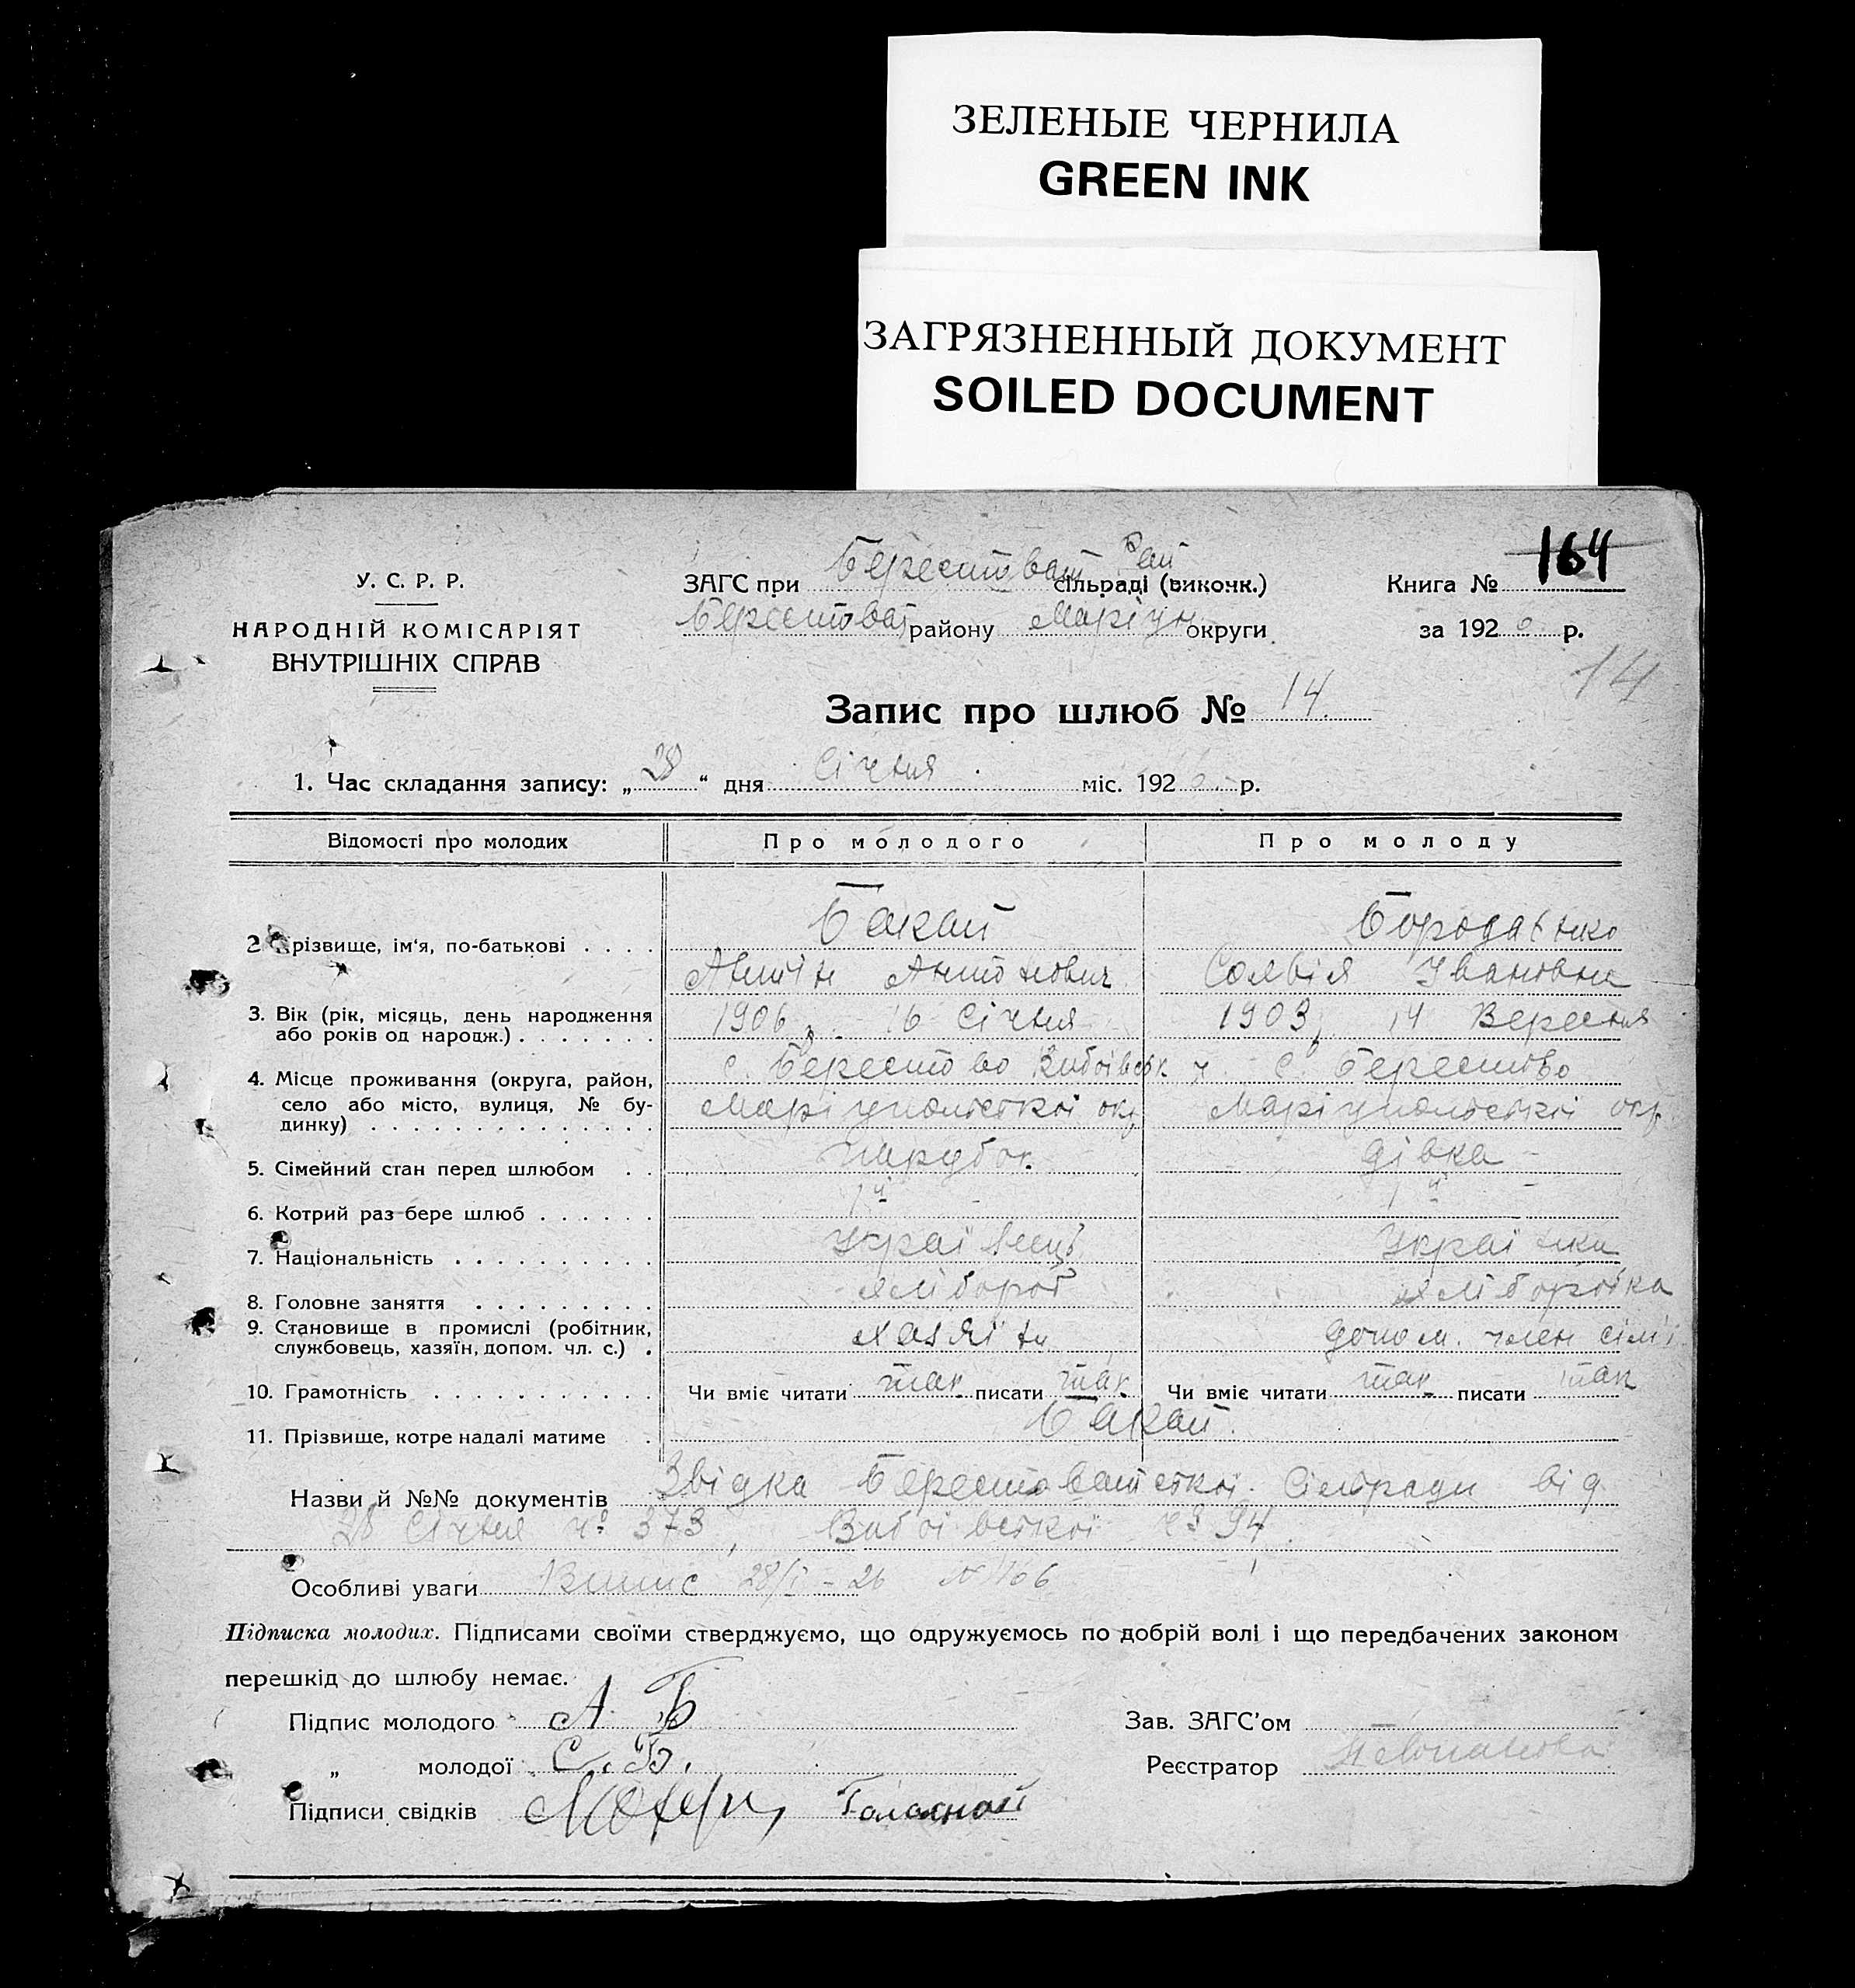 ЗЕЛЕНЫЕ ЧЕРНИЛА
GREEN INK
ЗАГРЯЗНЕННЫЙ ДОКУМЕНТ
SOILED DOCUMENT
164
У. С. Р. Р.
НАРОДНІЙ КОМІСАРІЯТ
ВНУТРІШНІХ СПРАВ
ЗАГС при Берестоват Рай сільраді (викочк.)
Берестоват району Маріуп округи
Книга №
за 1926 р.
14
Запис про шлюб № 14.
1. Час складання запису: „28“ дня Січня міс. 1926 р.
Відомості про молодих Про молодого Про молоду
2. Прізвище, ім'я, по-батькові Бакай
Антін Антонович Ивановна
3. Вік (рік, місяць, день народження або років од народж.) 1906, 16 Січня 1903, 14 Вересня
4. Місце проживання (округа, район, село або місто, вулиця, № будинку) с. Берестово с. Берестово
Маріупольської окр Маріупольської окр.
5. Сімейний стан перед шлюбом парубок дівка
6. Котрий раз бере шлюб 1й 1й
7. Національність Українець Українка
8. Головне заняття хлібороб хліборобка
9. Становище в промислі (робітник, службовець, хазяїн, допом. чл. с.) хазяїн допом. член сім'ї
10. Грамотність Чи вміє читати так писати так Чи вміє читати так писати так
11. Прізвище, котре надалі матиме Бакай.
Назви й №№ документів Звідка Берестоватської Сільради від
28 Січня № 373, № 94.
Особливі уваги Випис 28/I-26 №
Підписка молодих. Підписами своїми стверджуємо, що одружуємось по добрій волі і що передбачених законом
перешкід до шлюбу немає.
Підпис молодого А. Б
„ молодої С. Б.
Підписи свідків
Зав. ЗАГС'ом
Реєстратор